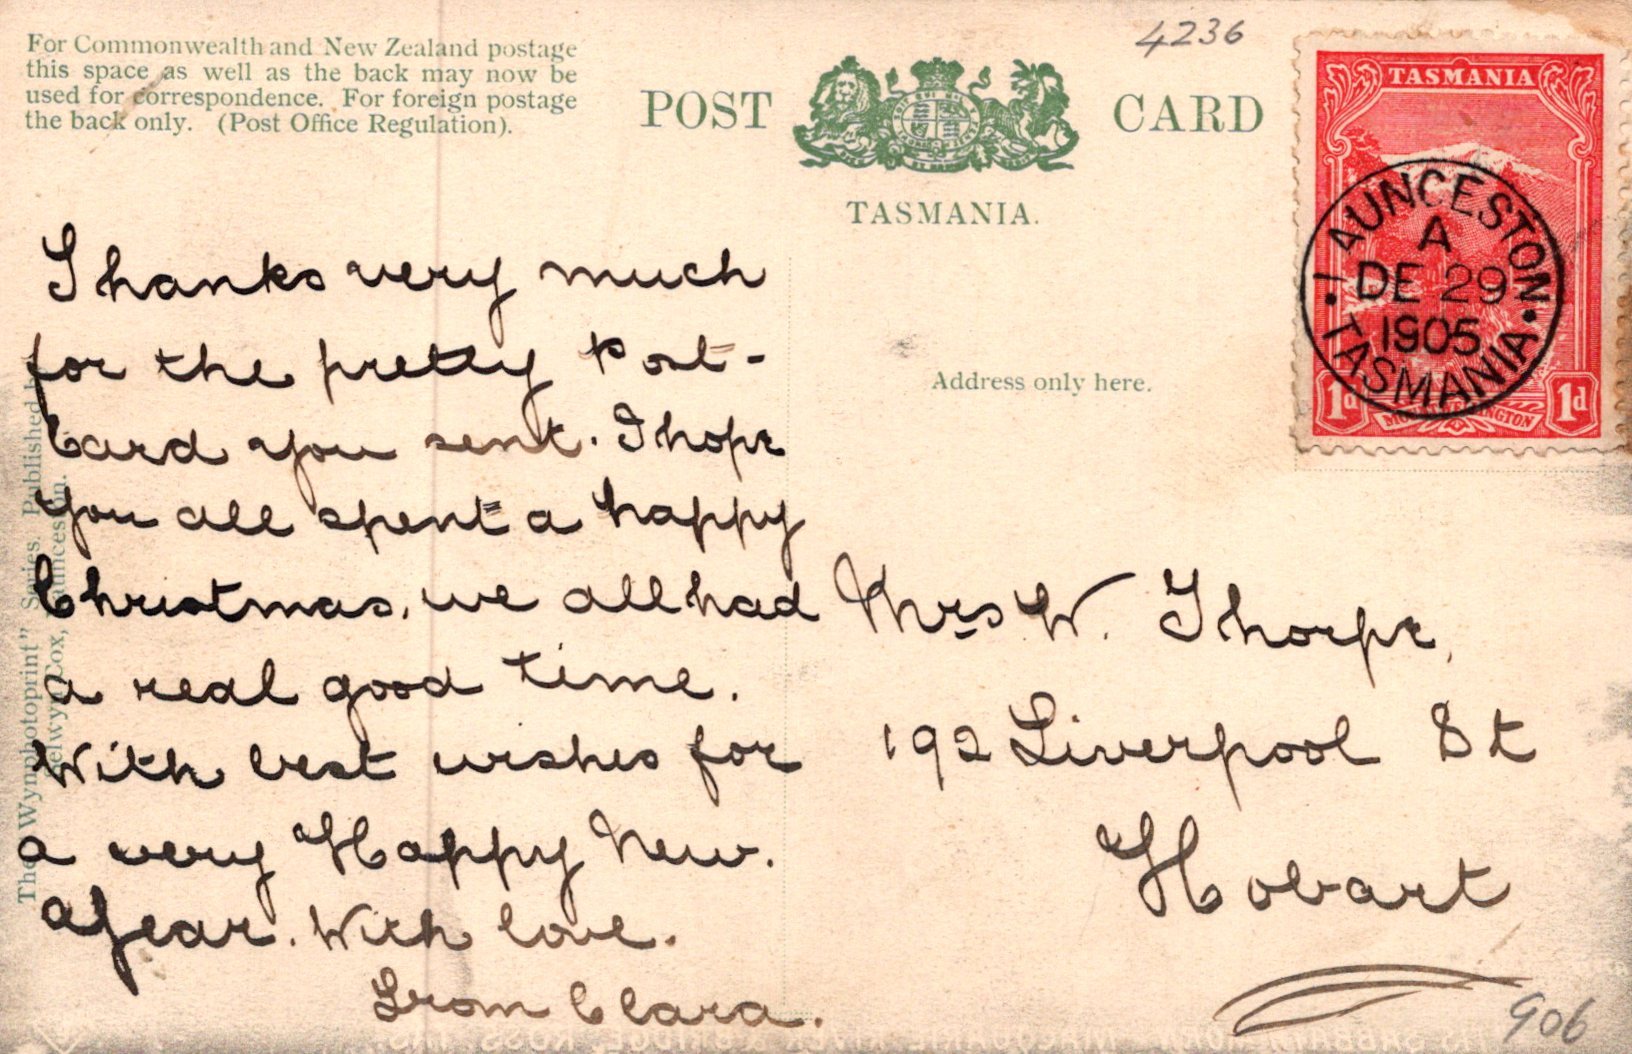 4236
For Commonwealth and New Zealand postage
this space as well as the back may now be
used for correspondence. For foreign postage
the back only. (Post Office Regulation).
POST CARD
TASMANIA.
TASMANIA
LAUNCESTON
A
DE 29
1905
TASMANIA
1d 1d
MOUNT WELLINGTON
Thanks very much
for the pretty Post-
Card you sent. I hope
you all spent a happy
Christmas, we all had
a real good time.
With best wishes for
a very Happy New.
Year. With love.
From Clara.
Address only here.
Mrs W. Thorpe,
192 Liverpool St
Hobart
906
The "Wynphotoprint" Series. Published by
Selwyn Cox, Launceston.